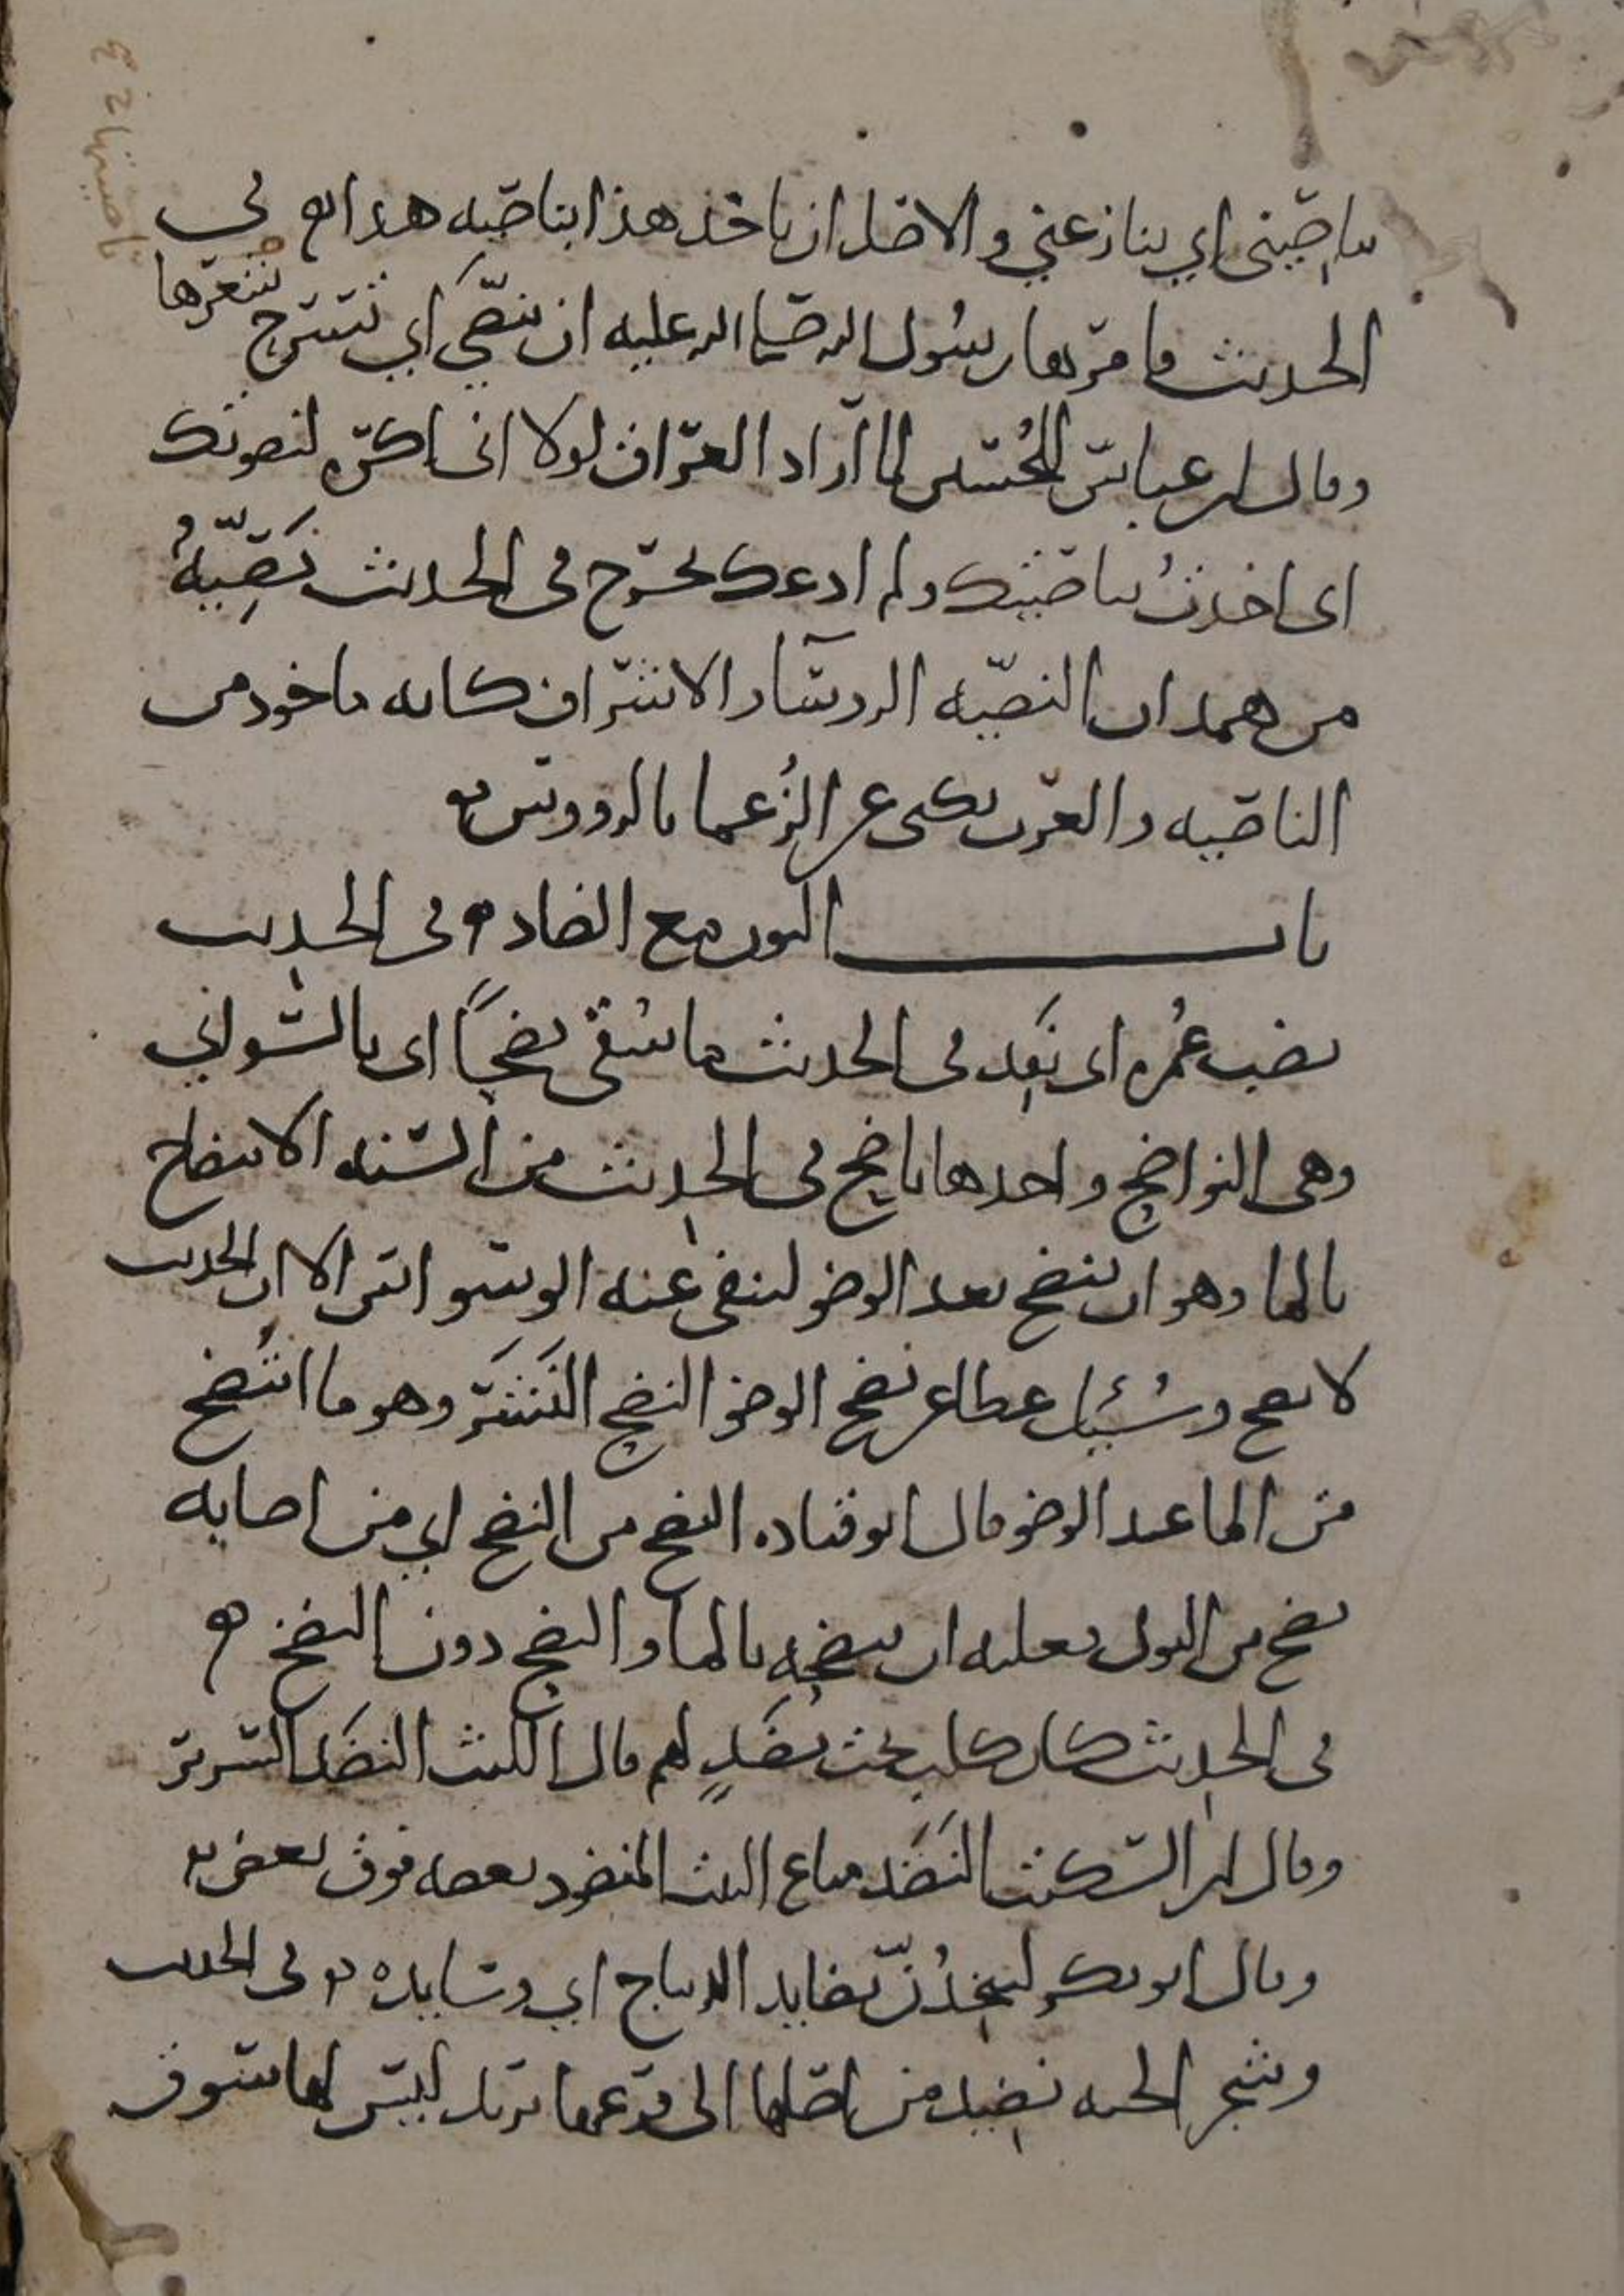 يناصيني اي ينازعني والاصل ان ياخذ هذا بناصيه هذا في
الحديث فامرها رسول الله صلى الله عليه ان تنصى اي تسرح شعرها
وقال ابن عباس للحسين لما اراد العراق لولا اني اكره لنصوتك
اي اخذت بناصيتك ولم ادعك تخرج في الحديث نصية
من همدان النصيه الروسا والاشراف كانه ماخوذ من
الناصيه والعرب تكنى عن الزعما بالرووس
باب النون مع الضاد في الحديث
نضب عمره اي نفد في الحديث ما سقى نضحا اي بالسواني
وهي النواضح واحدها ناضح في الحديث من السنه الانتضاح
بالما وهو ان ينضح بعد الوضو لينفى عنه الوسواس الا ان الحديث
لا يصح وسئل عطا عن نضح الوضو النضح النشر وهو ما انتضح
من الما عند الوضو قال ابو قتاده النضح من النضح اي من اصابه
نضح من البول فعليه ان ينضحه بالما والنضح دون النضخ
في الحديث كان كلب تحت نضد لهم قال الليث النضد السرير
وقال ابن السكيت النضد متاع البيت المنضود بعضه فوق بعض
وقال ابو بكر لتتخذن نضايد الديباج اي وسايده وفي الحديث
وشجر الجنه نضيد من اصلها الى فرعها يريد ليس لها سوق
ناصيتها